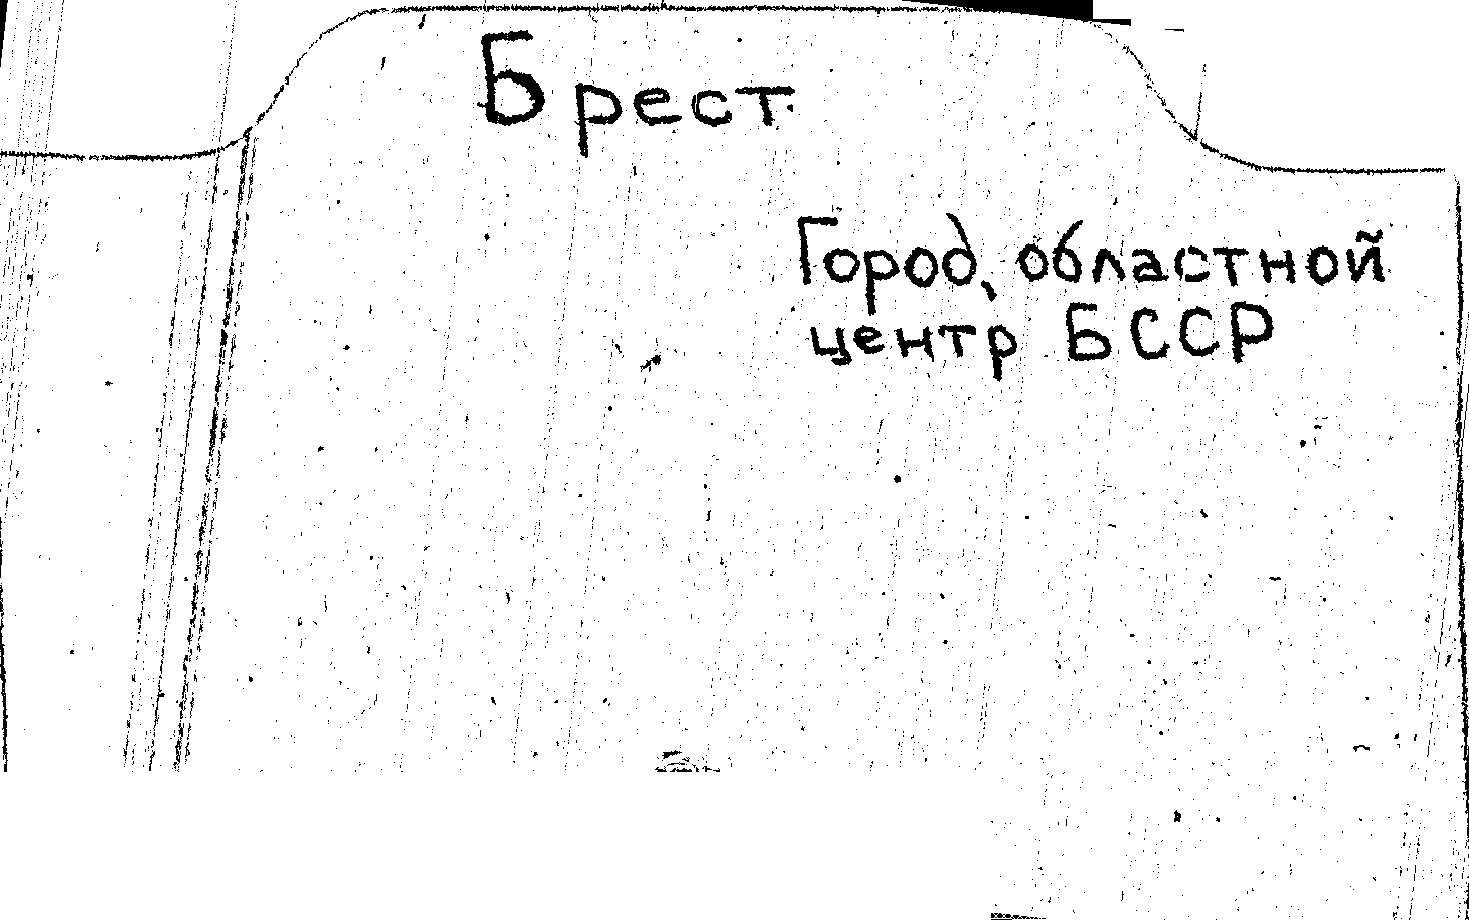 Брест
Город, областной
центр БССР